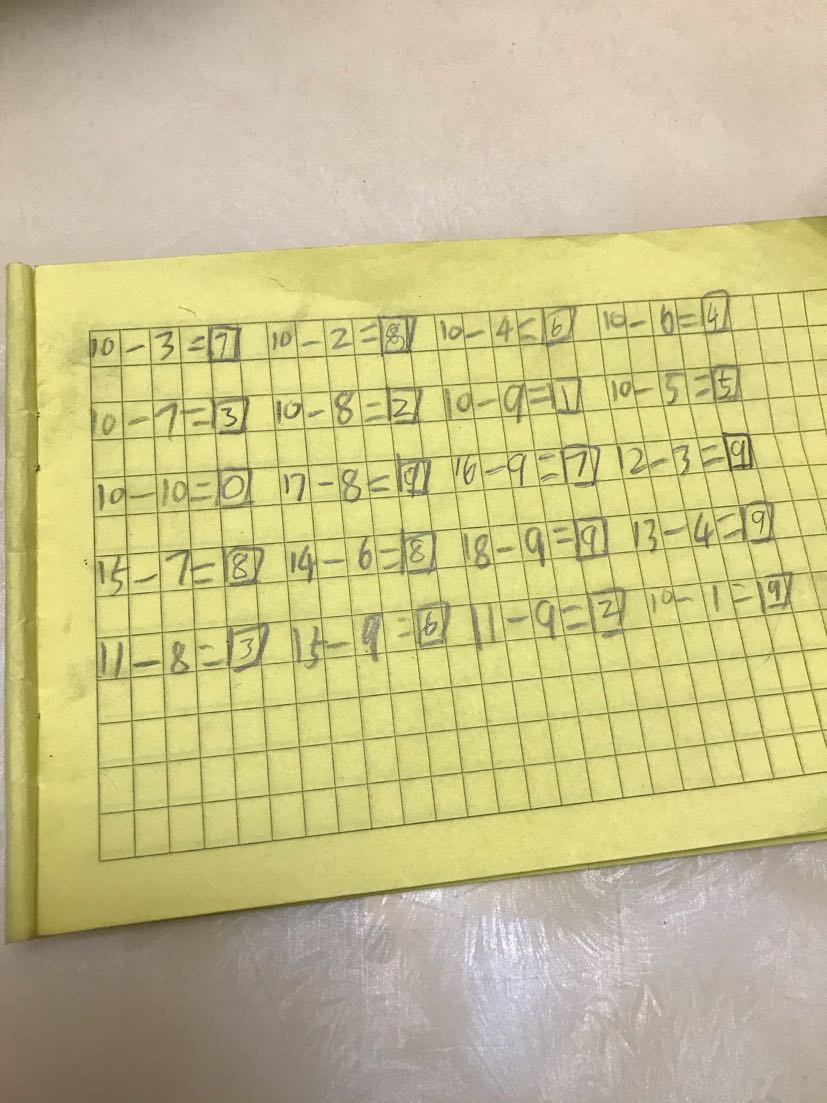 10-3=7 10-2=8 10-4=6 10-6=4
10-7=3 10-8=2 10-9=1 10-5=5
10-10=0 17-8=9 16-9=7 12-3=9
15-7=8 14-6=8 18-9=9 13-4=9
11-8=3 15-9=6 11-9=2 10-1=9